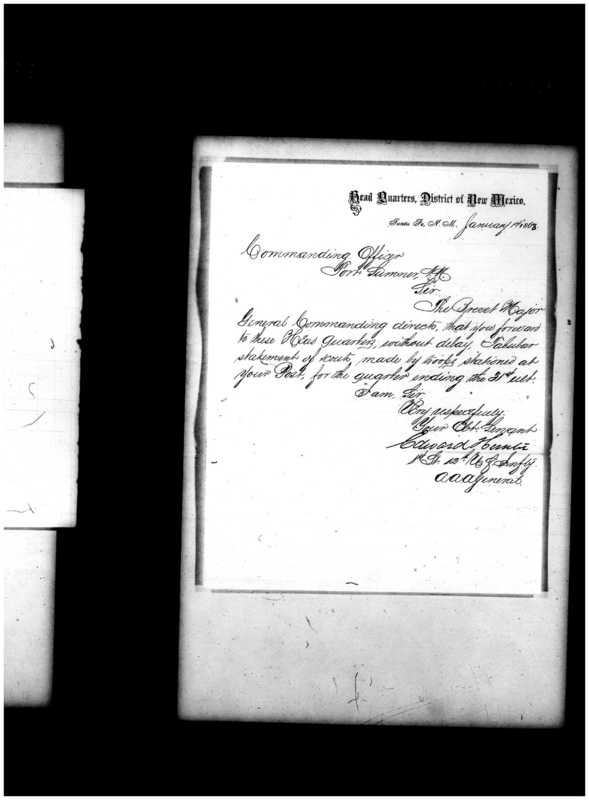 Head Quarters, District of New Mexico.
Santa Fe, N. M., January 1868
Commanding Officer
Fort Sumner, N M
Sir
The Brevet Major
General Commanding directs, that you forward
to these Head Quarters, without delay, Tabular
statement of made by troops, stationed at
your Post, for the quarter ending the 31st ult.
I am, Sir
Very respectfully
Your Obt. Servant
Edward Hunter
1st Lt. 12th U S Infty
A A A General